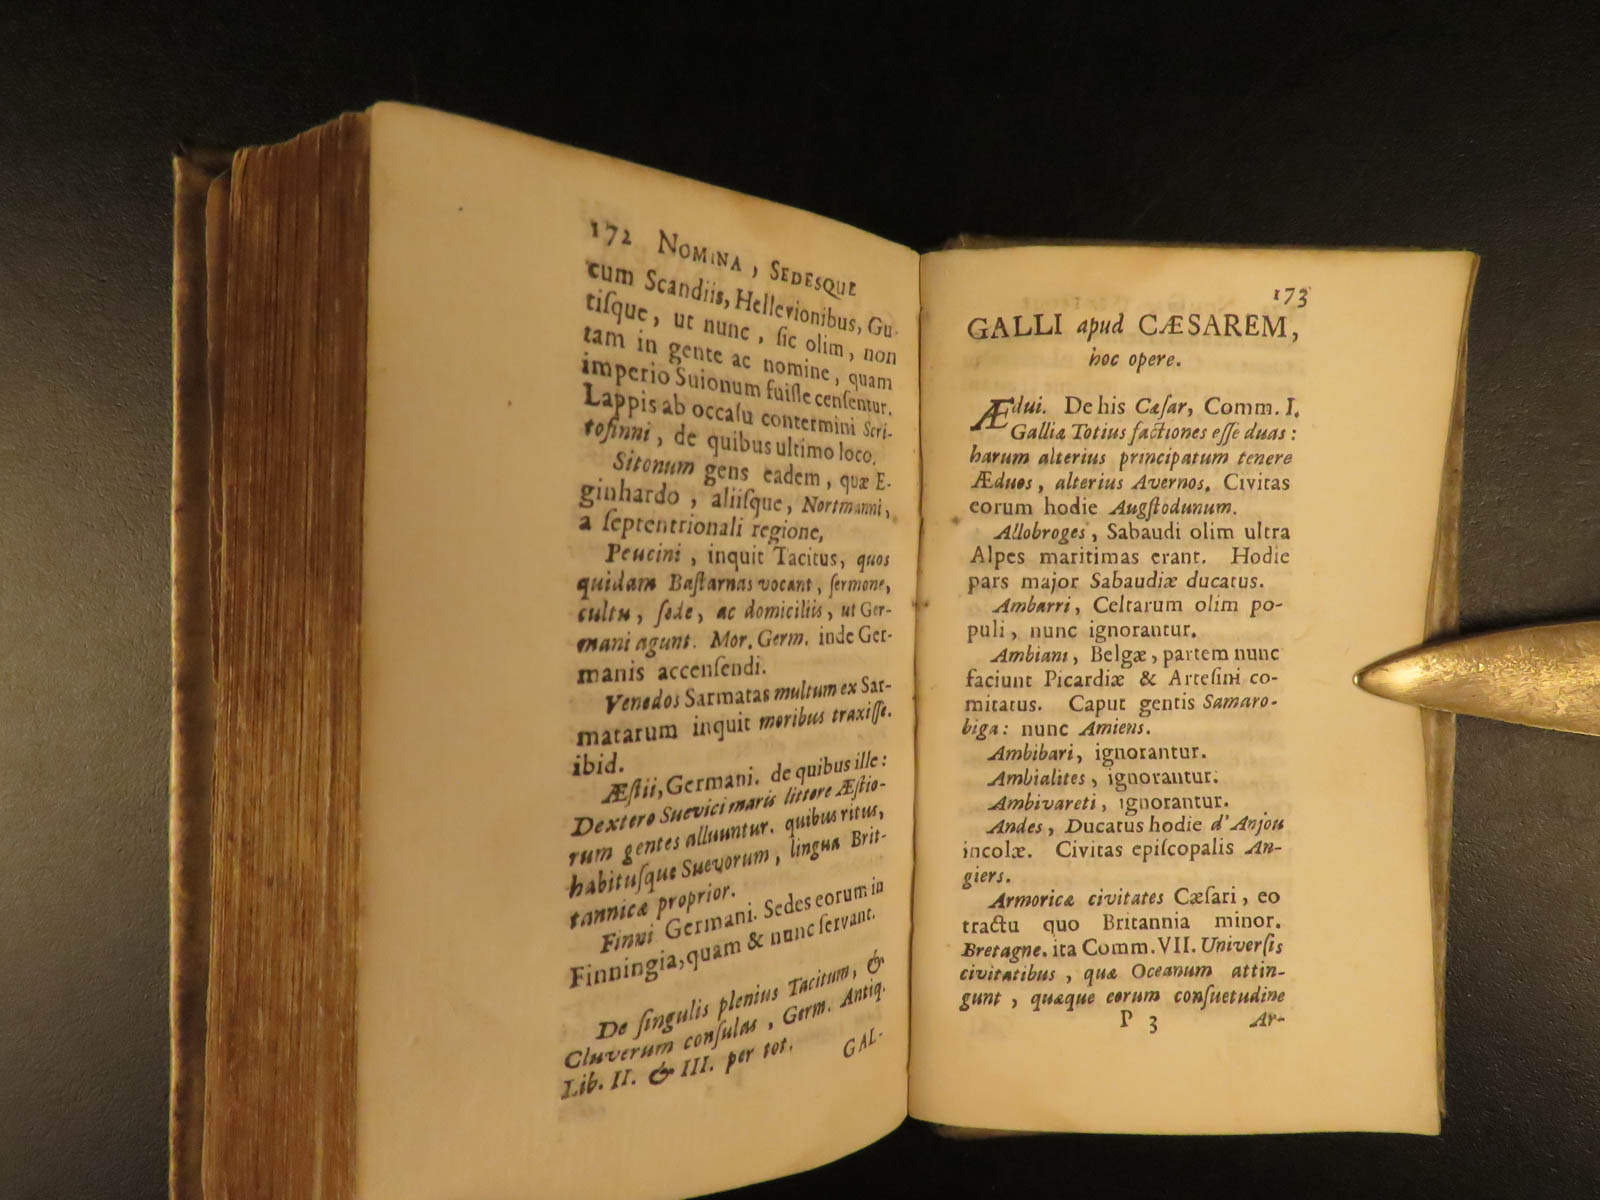 172 NOMINA, SEDESQUE
cum Scandiis, Hellevionibus, Gu-
tiſque, ut nunc, ſic olim, non
tam in gente ac nomine, quam
imperio Suionum fuiſſe cenſentur.
Lappis ab occaſu contermini Scri-
tofinni, de quibus ultimo loco.
Sitonum gens eadem, quæ E-
ginhardo, aliiſque, Nortmanni,
a ſeptentrionali regione,
Peucini, inquit Tacitus, quos
quidam Baſtarnas vocant, ſermone,
cultu, ſede, ac domiciliis, ut Ger-
mani agunt. Mor. Germ. inde Ger-
manis accenſendi.
Venedos Sarmatas multum ex Sar-
matarum inquit moribus traxiſſe.
ibid.
Æſtii, Germani. de quibus ille:
Dextero Suevici maris littore Æſtio-
rum gentes alluuntur. quibus ritus,
habituſque Suevorum, lingua Brit-
tannicæ proprior.
Finni Germani. Sedes eorum in
Finningia, quam & nunc ſervant.
De ſingulis plenius Tacitum, &
Cluverum conſulas, Germ. Antiq.
Lib. II. & III. per tot.
GAL-
173
GALLI apud CÆSAREM,
hoc opere.
Ædui. De his Cæſar, Comm. I.
Galliæ Totius factiones eſſe duas:
harum alterius principatum tenere
Æduos, alterius Avernos. Civitas
eorum hodie Augſtodunum.
Allobroges, Sabaudi olim ultra
Alpes maritimas erant. Hodie
pars major Sabaudiæ ducatus.
Ambarri, Celtarum olim po-
puli, nunc ignorantur.
Ambiani, Belgæ, partem nunc
faciunt Picardiæ & Arteſini co-
mitatus. Caput gentis Samaro-
biga: nunc Amiens.
Ambibari, ignorantur.
Ambialites, ignorantur.
Ambivareti, ignorantur.
Andes, Ducatus hodie d'Anjou
incolæ. Civitas epiſcopalis An-
giers.
Armoricæ civitates Cæſari, eo
tractu quo Britannia minor.
Bretagne. ita Comm. VII. Univerſis
civitatibus, quæ Oceanum attin-
gunt, quæque eorum conſuetudine
P 3 Ar-